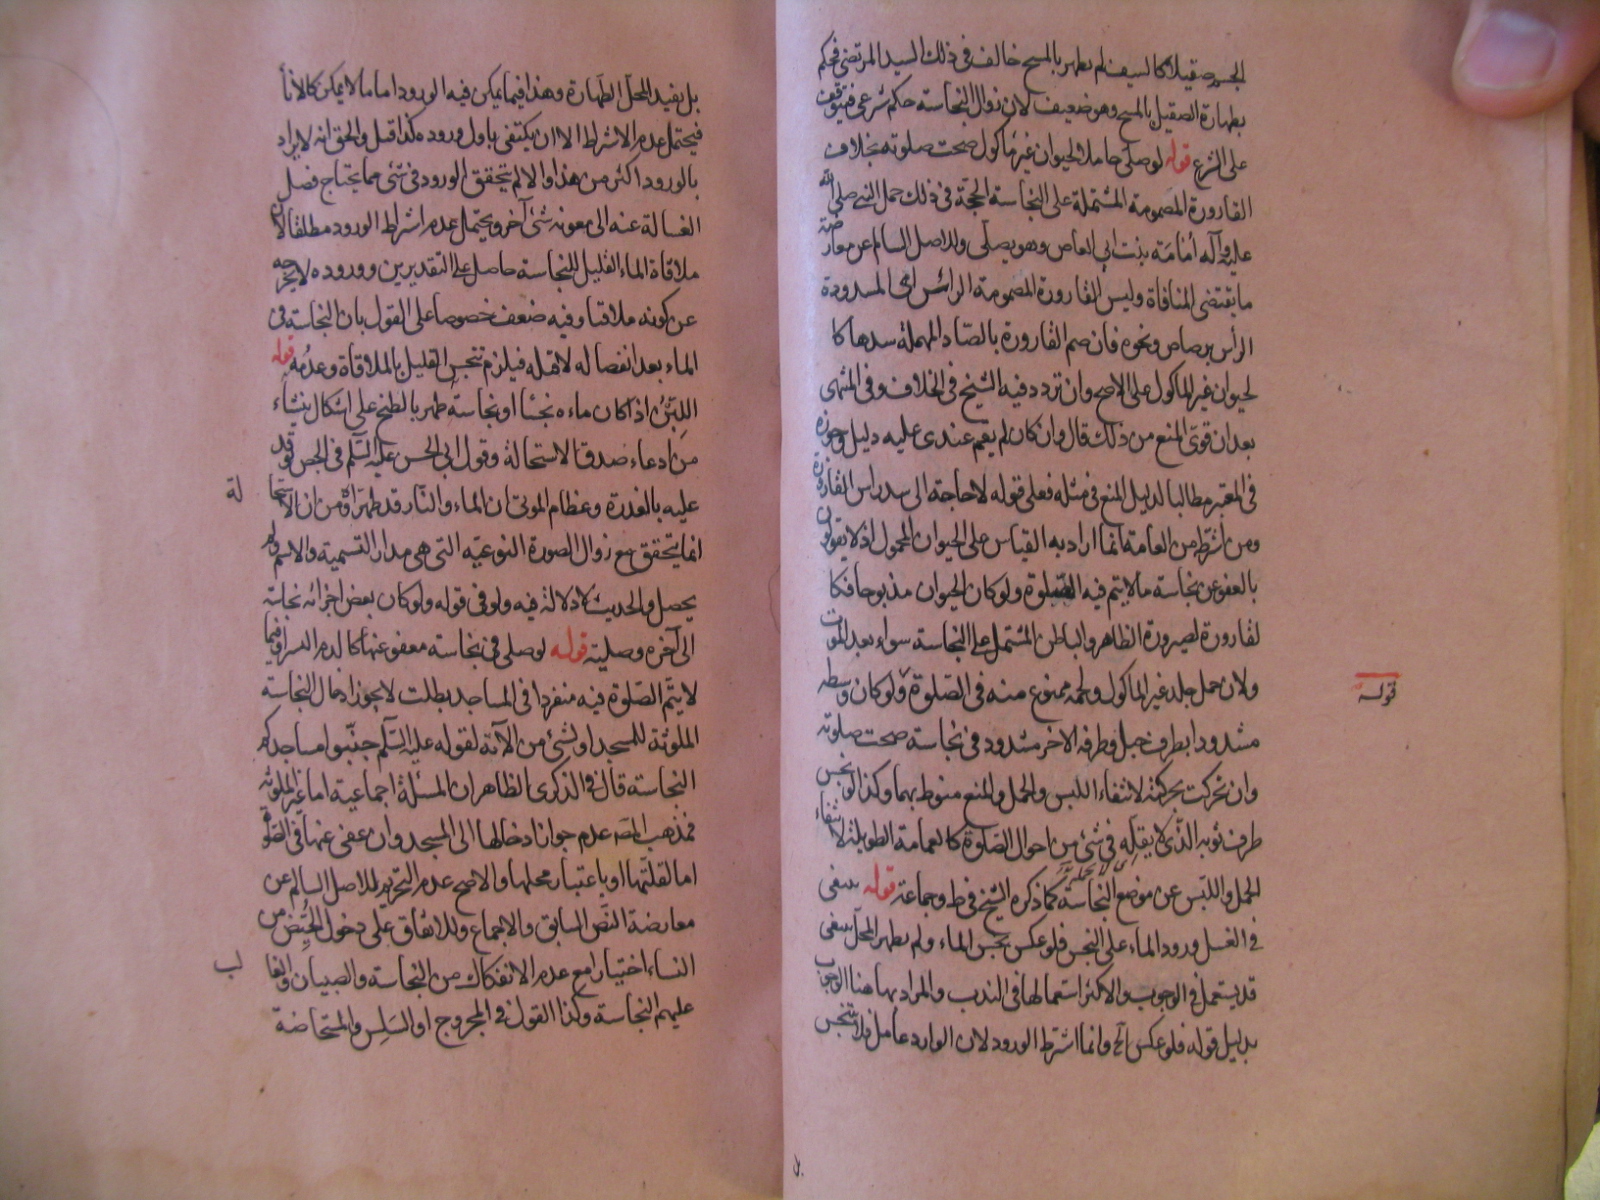 الجسم صقيلا كالسيف لم يطهر بالمسح خالف في ذلك السيد المرتضى فحكم
بطهارة الصقيل بالمسح وهو ضعيف لان زوال النجاسة حكم شرعي فيتوقف
على الشرع قوله لو صلى حاملا لحيوان غير مأكول صحت صلوته بخلاف
القارورة المصمومة المشتملة على النجاسة الحجة في ذلك حمل النبي صلى الله
عليه وآله أمامة بنت ابي العاص وهو يصلى وللاصل السالم عن معارضة
ما يقتضى المنافاة وليس القارورة المصمومة الرأس اى المسدودة
الرأس برصاص ونحوه فان صم القارورة بالصاد المهملة سدها كا
لحيوان غير المأكول على الاصح وان تردد فيه الشيخ في الخلاف وفي المنتهى
بعد ان قوى المنع من ذلك قال وان كان لم يقم عندى عليه دليل وجوزه
في المعتبر مطالبا لدليل المنع في مثله فعلى قوله لا حاجة الى سد راس القارورة
ومن اشترط من العامة انما اراد به القياس على الحيوان المحمول اذ لا يقولون
بالعفو عن نجاسة ما لا يتم فيه الصلوة ولو كان الحيوان مذبوحا فكا
لقارورة لصيرورة الظاهر والباطن المشتمل على النجاسة سواء بعد الموت
ولان حمل جلد غير المأكول ولحمه ممنوع منه في الصلوة ولو كان وسطه
قوله
مشدودا بطرف حبل وطرفه الاخر مشدود في نجاسة صحت صلوته
وان تحركت بحركته لانتفاء اللبس والحمل والمنع منوط بهما وكذا لو نجس
طرف ثوبه الذي لا يقله في شئ من احوال الصلوة كالعمامة الطويلة لانتفاء
الحمل واللبس عن موضع النجاسة كما ذكره الشيخ في ط وجماعة قوله ينبغى
في الغسل ورود الماء على النجس فلو عكس نجس الماء ولم يطهر المحل ينبغى
قد يستعمل في الوجوب والاكثر استعمالها في الندب والمراد بها هنا الوجوب
بدليل قوله فلو عكس آلخ وانما اشترط الورود لان الوارد عامل فلا يتنجس
بل يفيد المحل الطهارة وهذا فيما يمكن فيه الورود اما ما لا يمكن كالاناء
فيحتمل عدم الاشتراط الا ان يكتفى باول وروده كذا قيل والحق انه لا يراد
بالورود اكثر من هذا والا لم يتحقق الورود في شئ مما يحتاج فصل
الغسالة عنه الى معونة شئ آخر ويحتمل عدم اشتراط الورود مطلقا لان
ملاقاة الماء القليل للنجاسة حاصل على التقديرين ووروده لا يخرجه
عن كونه ملاقيا وفيه ضعف خصوصا على القول بان النجاسة في
الماء بعد انفصاله لا قبله فيلزم تنجس القليل بالملاقاة وعدمه قوله
اللبن اذا كان ماءه نجسا او نجاسة طهر بالطبخ على اشكال ينشاء
من ادعاء صدق الاستحالة وقول ابي الحسن عليه السلم في الجص توقد
عليه بالعذرة وعظام الموتى ان الماء والنار قد طهراه ومن ان الاستحا
لة
انما يتحقق مع زوال الصورة النوعية التي هي مدار التسمية والاسم ولم
يحصل والحديث لا دلالة فيه ولو في قوله ولو كان بعض اجزائه نجاسة
الى آخره وصلية قوله لو صلى في نجاسة معفو عنها كالدم اليسير او فيما
لا يتم الصلوة فيه منفردا في المساجد بطلت لا يجوز ادخال النجاسة
الملوثة للمسجد او لشئ من الآته لقوله عليه السلم جنبوا مساجدكم
النجاسة قال في الذكرى الظاهر ان المسئلة اجماعية اما غير الملوثة
فمذهب المصه عدم جواز ادخالها الى المسجد وان عفى عنها في الصلوة
اما لقلتها او باعتبار محلها والاصح عدم التحريم للاصل السالم عن
معارضة النص السابق والاجماع وللاتفاق على دخول الحيض من
النساء اختيارا مع عدم الانفكاك من النجاسة والصبيان والغا
لب
عليهم النجاسة وكذا القول في المجروح او السلس والمستحاضة